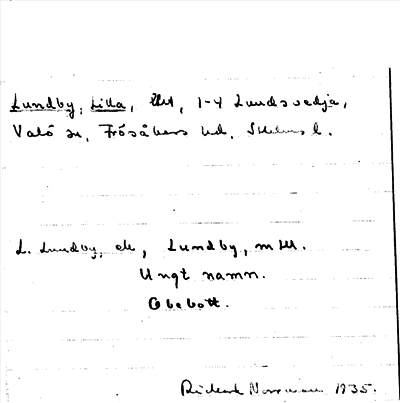 Lundby, Lilla, lht, 1-4 Lundsvedja,
Valö sn, Frösåkers hd, Sthlms l.
L. Lundby, el, Lundby, m ll.
Ungt namn.
Obebott.
Rickard Norrman 1935.